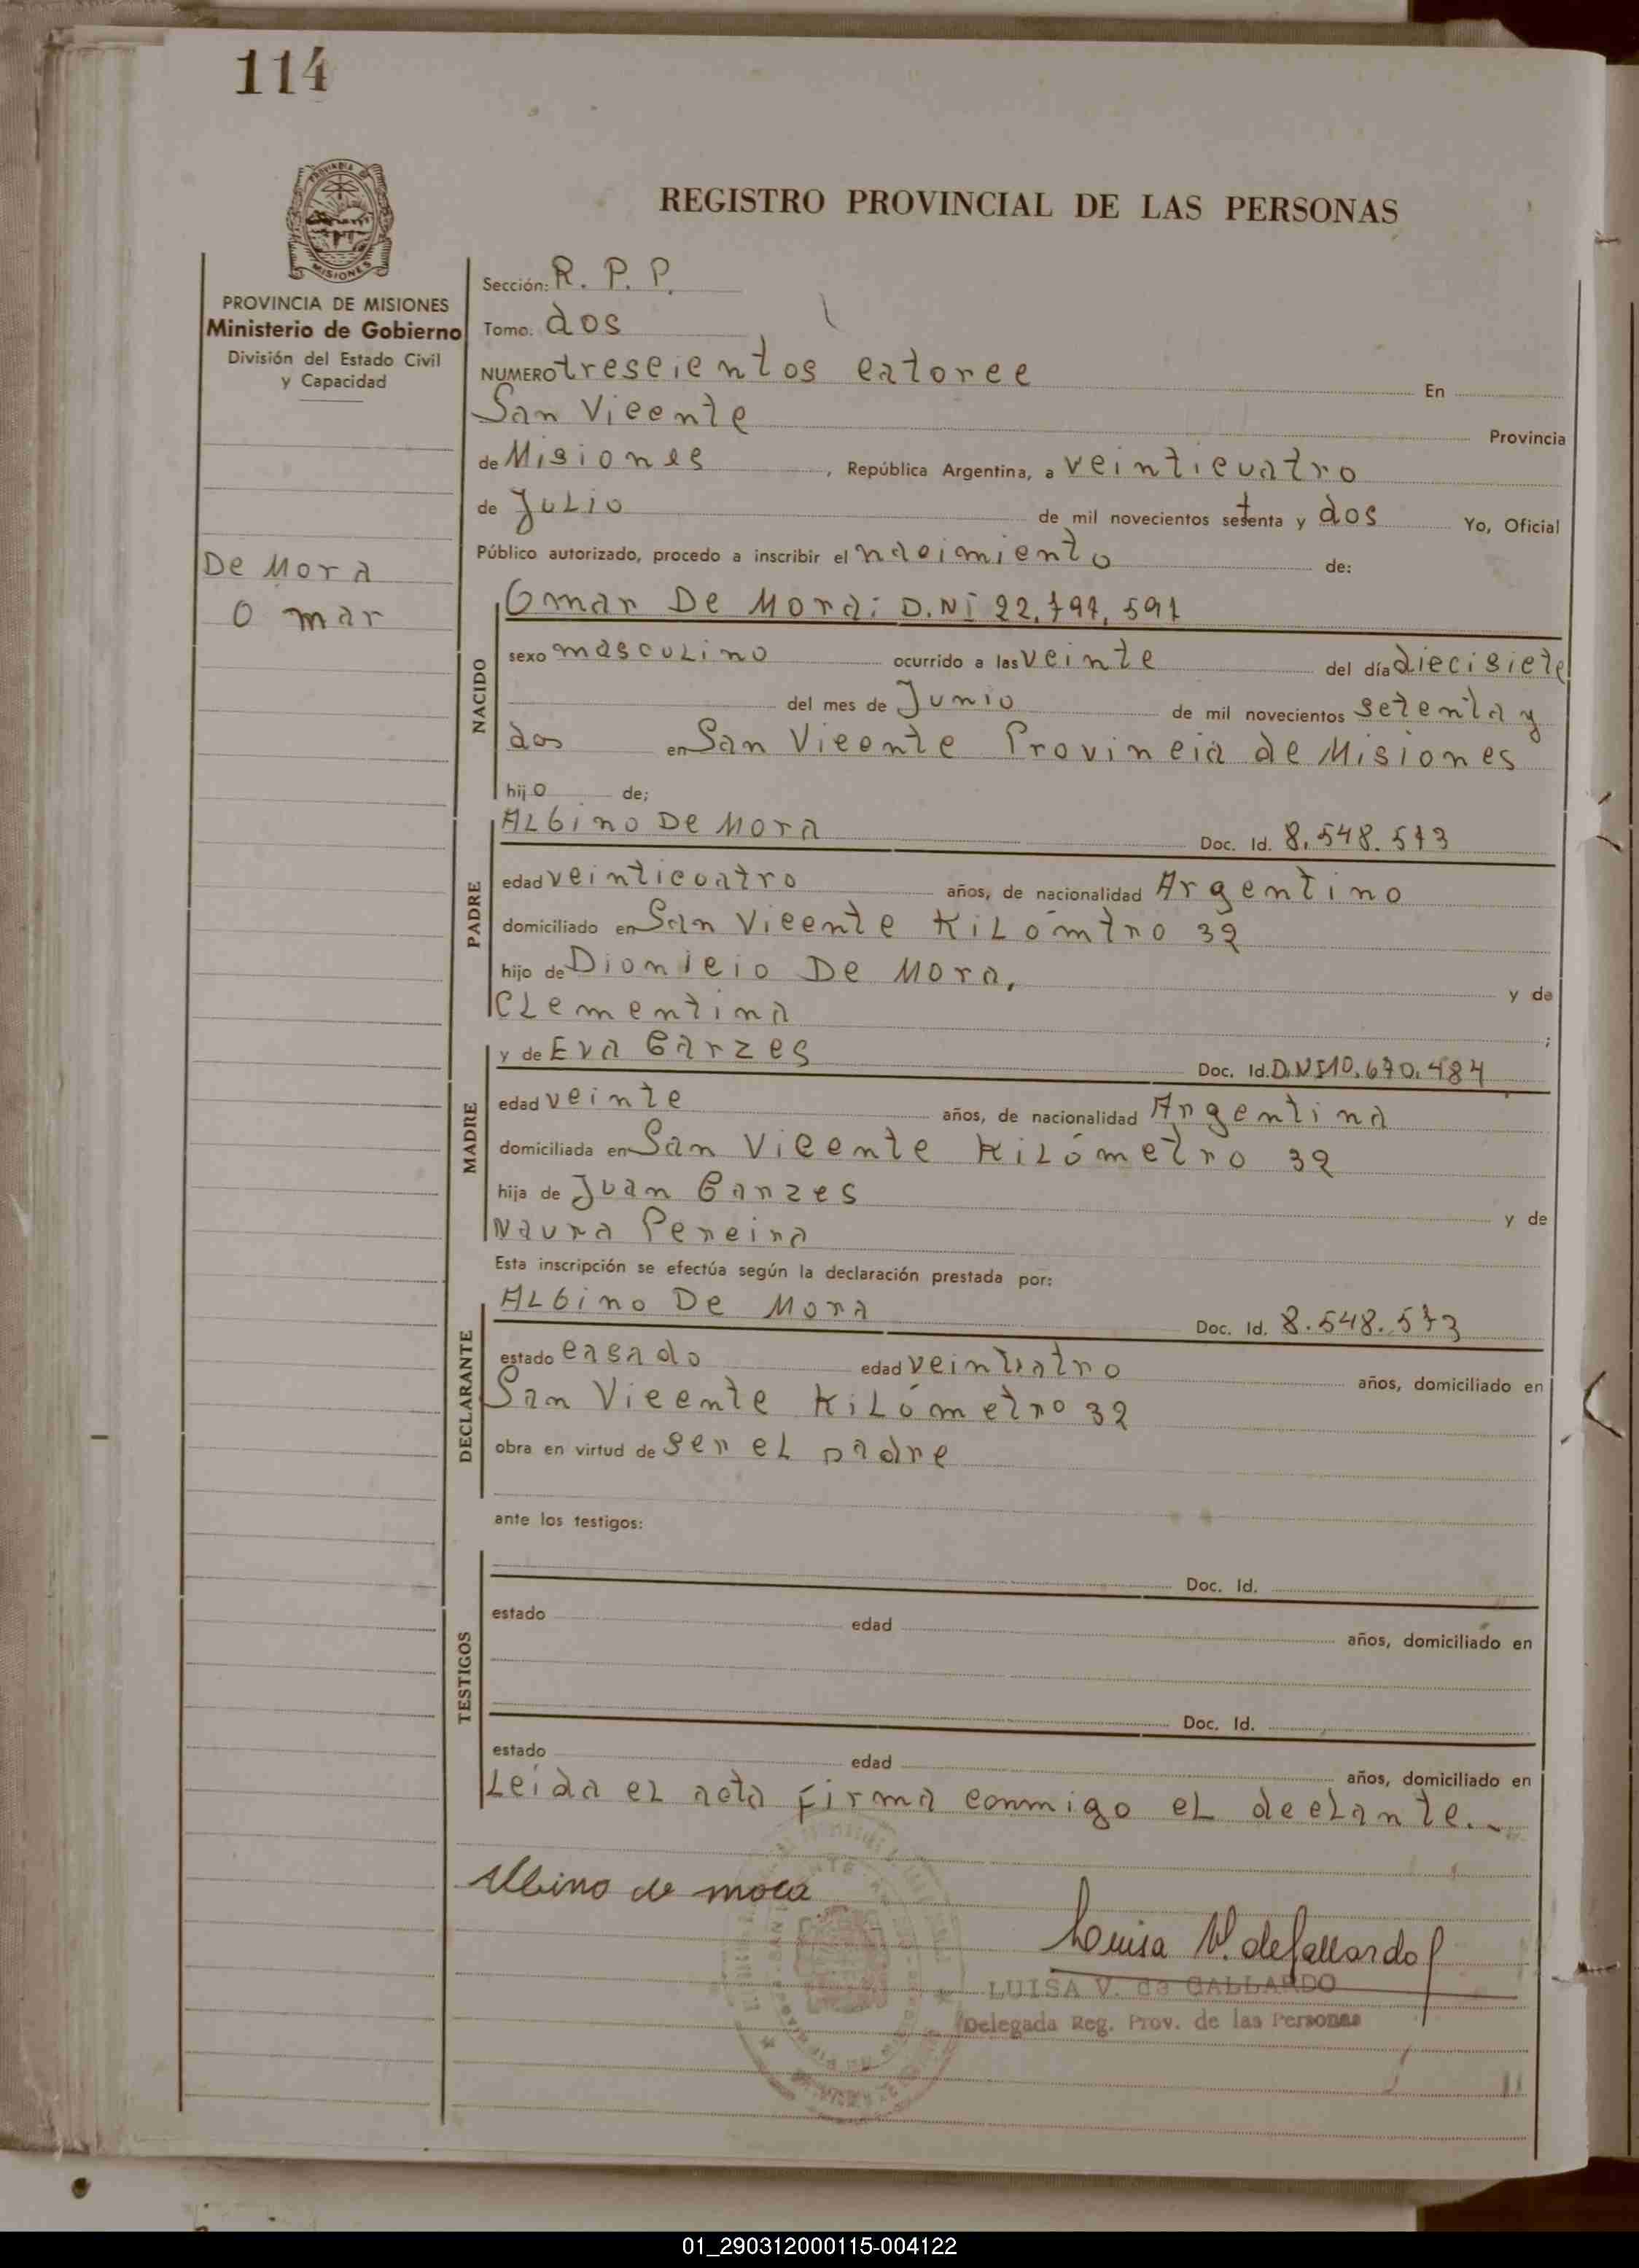 114
PROVINCIA DE MISIONES
REGISTRO PROVINCIAL DE LAS PERSONAS
PROVINCIA DE MISIONES
Ministerio de Gobierno
División del Estado Civil
y Capacidad
De Mora
Omar
Sección: R. P. P.
Tomo: dos
NUMERO trescientos catorce En
San Vicente Provincia
de Misiones, República Argentina, a veinticuatro
de Julio de mil novecientos setenta y dos Yo, Oficial
Público autorizado, procedo a inscribir el nacimiento de:
NACIDO
Omar De Mora: D.NI 22.797.591
sexo masculino ocurrido a las veinte del día diecisiete
del mes de Junio de mil novecientos setenta y
dos en San Vicente Provincia de Misiones
hijo de;
PADRE
ALbino De Mora Doc. Id. 8.548.573
edad veinticuatro años, de nacionalidad Argentino
domiciliado en San Vicente KiLómtro 32
hijo de Dionicio De Mora, y de
CLementina ;
MADRE
y de Eva Garzes Doc. Id. D.NI 10.670.484
edad veinte años, de nacionalidad Argentina
domiciliada en San Vicente KiLómetro 32
hija de Juan Garzes y de
Naura Pereira
Esta inscripción se efectúa según la declaración prestada por:
DECLARANTE
ALbino De Mora Doc. Id. 8.548.573
estado casado edad años, domiciliado en
San Vicente KiLómetro 32
obra en virtud de ser eL padre
ante los testigos:
TESTIGOS
Doc. Id.
estado edad años, domiciliado en
Doc. Id.
estado edad años, domiciliado en
Leida eL acta firma conmigo eL decLante.-
Albino de mora
Luisa V. de Gallardo
LUISA V. de GALLARDO
Delegada Reg. Prov. de las Personas
01_290312000115-004122